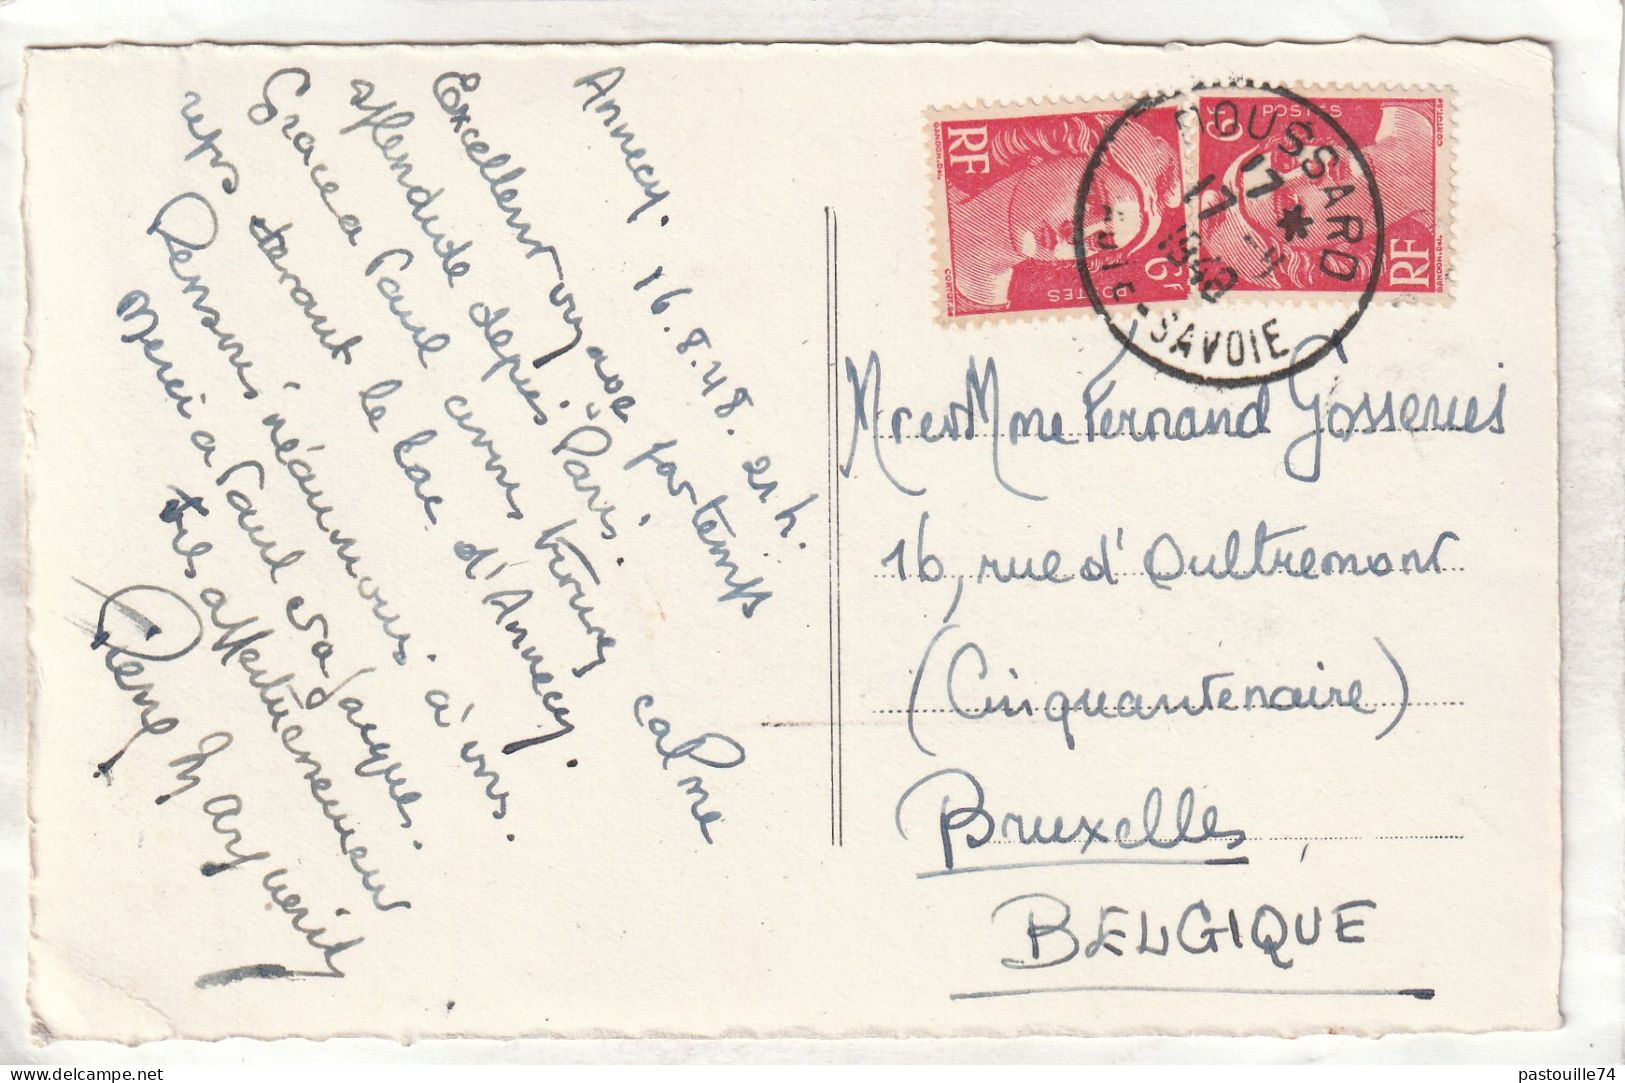 Annecy. 16.8.48. 21 h.
Excellent voyage par temps
splendide depuis Paris.
Grâce à Paul avons trouvé calme
repos devant le lac d'Annecy.
Pensons néanmoins à vous.
Merci à Paul et à Jacques.
Très affectueusement
Pierre Marquerily
RF
POSTES
6F
POSTES
RF
DOUSSARD
17 *
17 -8
1948
SAVOIE
Mr et Mme Fernand Gosseries
16, rue d'Oultremont
(Cinquantenaire)
Bruxelles
BELGIQUE
pastouille74